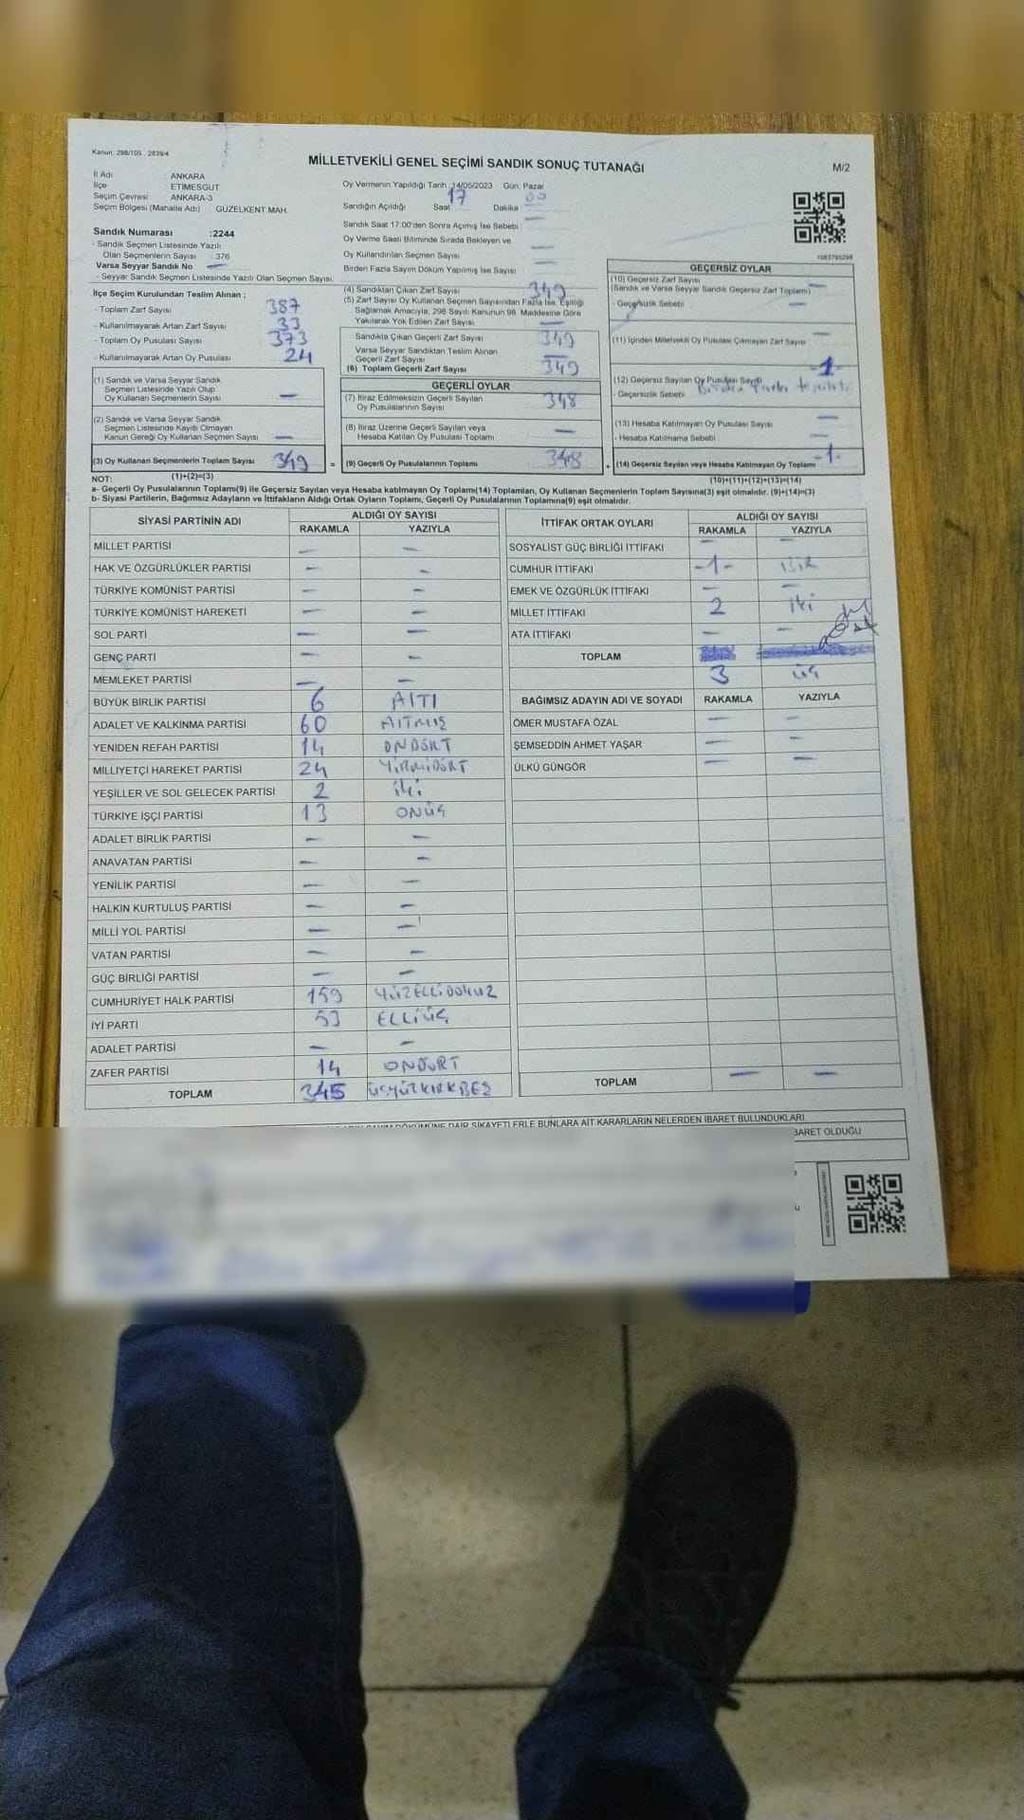 Kanun: 298/105 2839/4
MİLLETVEKİLİ GENEL SEÇİMİ SANDIK SONUÇ TUTANAĞI
M/2
İl Adı ANKARA
İlçe ETİMESGUT
Seçim Çevresi ANKARA-3
Seçim Bölgesi (Mahalle Adı) GÜZELKENT MAH.
Sandık Numarası :2244
- Sandık Seçmen Listesinde Yazılı
Olan Seçmenlerin Sayısı : 376
Varsa Seyyar Sandık No —
- Seyyar Sandık Seçmen Listesinde Yazılı Olan Seçmen Sayısı:
Oy Vermenin Yapıldığı Tarih :14/05/2023 Gün: Pazar
Sandığın Açıldığı Saat 17 Dakika 00
Sandık Saat 17:00'den Sonra Açımış İse Sebebi : —
Oy Verme Saati Bitiminde Sırada Bekleyen ve
Oy Kullandırılan Seçmen Sayısı —
Birden Fazla Sayım Döküm Yapılmış İse Sayısı —
İlçe Seçim Kurulundan Teslim Alınan ;
- Toplam Zarf Sayısı 387
- Kullanılmayarak Artan Zarf Sayısı 33
- Toplam Oy Pusulası Sayısı 373
- Kullanılmayarak Artan Oy Pusulası 24
(1) Sandık ve Varsa Seyyar Sandık
Seçmen Listesinde Yazılı Olup
Oy Kullanan Seçmenlerin Sayısı —
(2) Sandık ve Varsa Seyyar Sandık
Seçmen Listesinde Kayıtlı Olmayan
Kanun Gereği Oy Kullanan Seçmen Sayısı —
(3) Oy Kullanan Seçmenlerin Toplam Sayısı 349
(4) Sandıktan Çıkan Zarf Sayısı 349
(5) Zarf Sayısı Oy Kullanan Seçmen Sayısından Fazla İse, Eşitliği
Sağlamak Amacıyla, 298 Sayılı Kanunun 98. Maddesine Göre
Yakılarak Yok Edilen Zarf Sayısı —
Sandıkta Çıkan Geçerli Zarf Sayısı 349
Varsa Seyyar Sandıktan Teslim Alınan
Geçerli Zarf Sayısı —
(6) Toplam Geçerli Zarf Sayısı 349
GEÇERLİ OYLAR
(7) İtiraz Edilmeksizin Geçerli Sayılan
Oy Pusulalarının Sayısı 348
(8) İtiraz Üzerine Geçerli Sayılan veya
Hesaba Katılan Oy Pusulası Toplamı —
= (9) Geçerli Oy Pusulalarının Toplamı 348
GEÇERSİZ OYLAR
(10) Geçersiz Zarf Sayısı
(Sandık ve Varsa Seyyar Sandık Geçersiz Zarf Toplamı) —
- Geçersizlik Sebebi —
(11) İçinden Milletvekili Oy Pusulası Çıkmayan Zarf Sayısı —
(12) Geçersiz Sayılan Oy Pusulası Sayısı -1-
- Geçersizlik Sebebi
(13) Hesaba Katılmayan Oy Pusulası Sayısı —
- Hesaba Katılmama Sebebi —
+ (14) Geçersiz Sayılan veya Hesaba Katılmayan Oy Toplamı -1-
NOT: (1)+(2)=(3) (10)+(11)+(12)+(13)=(14)
a- Geçerli Oy Pusulalarının Toplamı(9) ile Geçersiz Sayılan veya Hesaba katılmayan Oy Toplamı(14) Toplamları, Oy Kullanan Seçmenlerin Toplam Sayısına(3) eşit olmalıdır. (9)+(14)=(3)
b- Siyasi Partilerin, Bağımsız Adayların ve İttifakların Aldığı Ortak Oyların Toplamı, Geçerli Oy Pusulalarının Toplamına(9) eşit olmalıdır.
SİYASİ PARTİNİN ADI ALDIĞI OY SAYISI
RAKAMLA YAZIYLA
MİLLET PARTİSİ — —
HAK VE ÖZGÜRLÜKLER PARTİSİ — —
TÜRKİYE KOMÜNİST PARTİSİ — —
TÜRKİYE KOMÜNİST HAREKETİ — —
SOL PARTİ — —
GENÇ PARTİ — —
MEMLEKET PARTİSİ — —
BÜYÜK BİRLİK PARTİSİ 6 AITI
ADALET VE KALKINMA PARTİSİ 60 AITMIŞ
YENİDEN REFAH PARTİSİ 14 ONDÖRT
MİLLİYETÇİ HAREKET PARTİSİ 24 YİRMİDÖRT
YEŞİLLER VE SOL GELECEK PARTİSİ 2 iki
TÜRKİYE İŞÇİ PARTİSİ 13 ONÜÇ
ADALET BİRLİK PARTİSİ — —
ANAVATAN PARTİSİ — —
YENİLİK PARTİSİ — —
HALKIN KURTULUŞ PARTİSİ — —
MİLLİ YOL PARTİSİ — —
VATAN PARTİSİ — —
GÜÇ BİRLİĞİ PARTİSİ — —
CUMHURİYET HALK PARTİSİ 159 YÜZELLİDOKUZ
İYİ PARTİ 53 ELLİÜÇ
ADALET PARTİSİ — —
ZAFER PARTİSİ 14 ONDÖRT
TOPLAM 345 ÜÇYÜZKIRKBEŞ
İTTİFAK ORTAK OYLARI ALDIĞI OY SAYISI
RAKAMLA YAZIYLA
SOSYALİST GÜÇ BİRLİĞİ İTTİFAKI — —
CUMHUR İTTİFAKI -1- BİR
EMEK VE ÖZGÜRLÜK İTTİFAKI — —
MİLLET İTTİFAKI 2 iki
ATA İTTİFAKI — —
TOPLAM
3 üç
BAĞIMSIZ ADAYIN ADI VE SOYADI RAKAMLA YAZIYLA
ÖMER MUSTAFA ÖZAL — —
ŞEMSEDDİN AHMET YAŞAR — —
ÜLKÜ GÜNGÖR — —
TOPLAM — —
DÖKÜMÜNE DAİR ŞİKAYETLERLE BUNLARA AİT KARARLARIN NELERDEN İBARET BULUNDUKLARI
BARET OLDUĞU